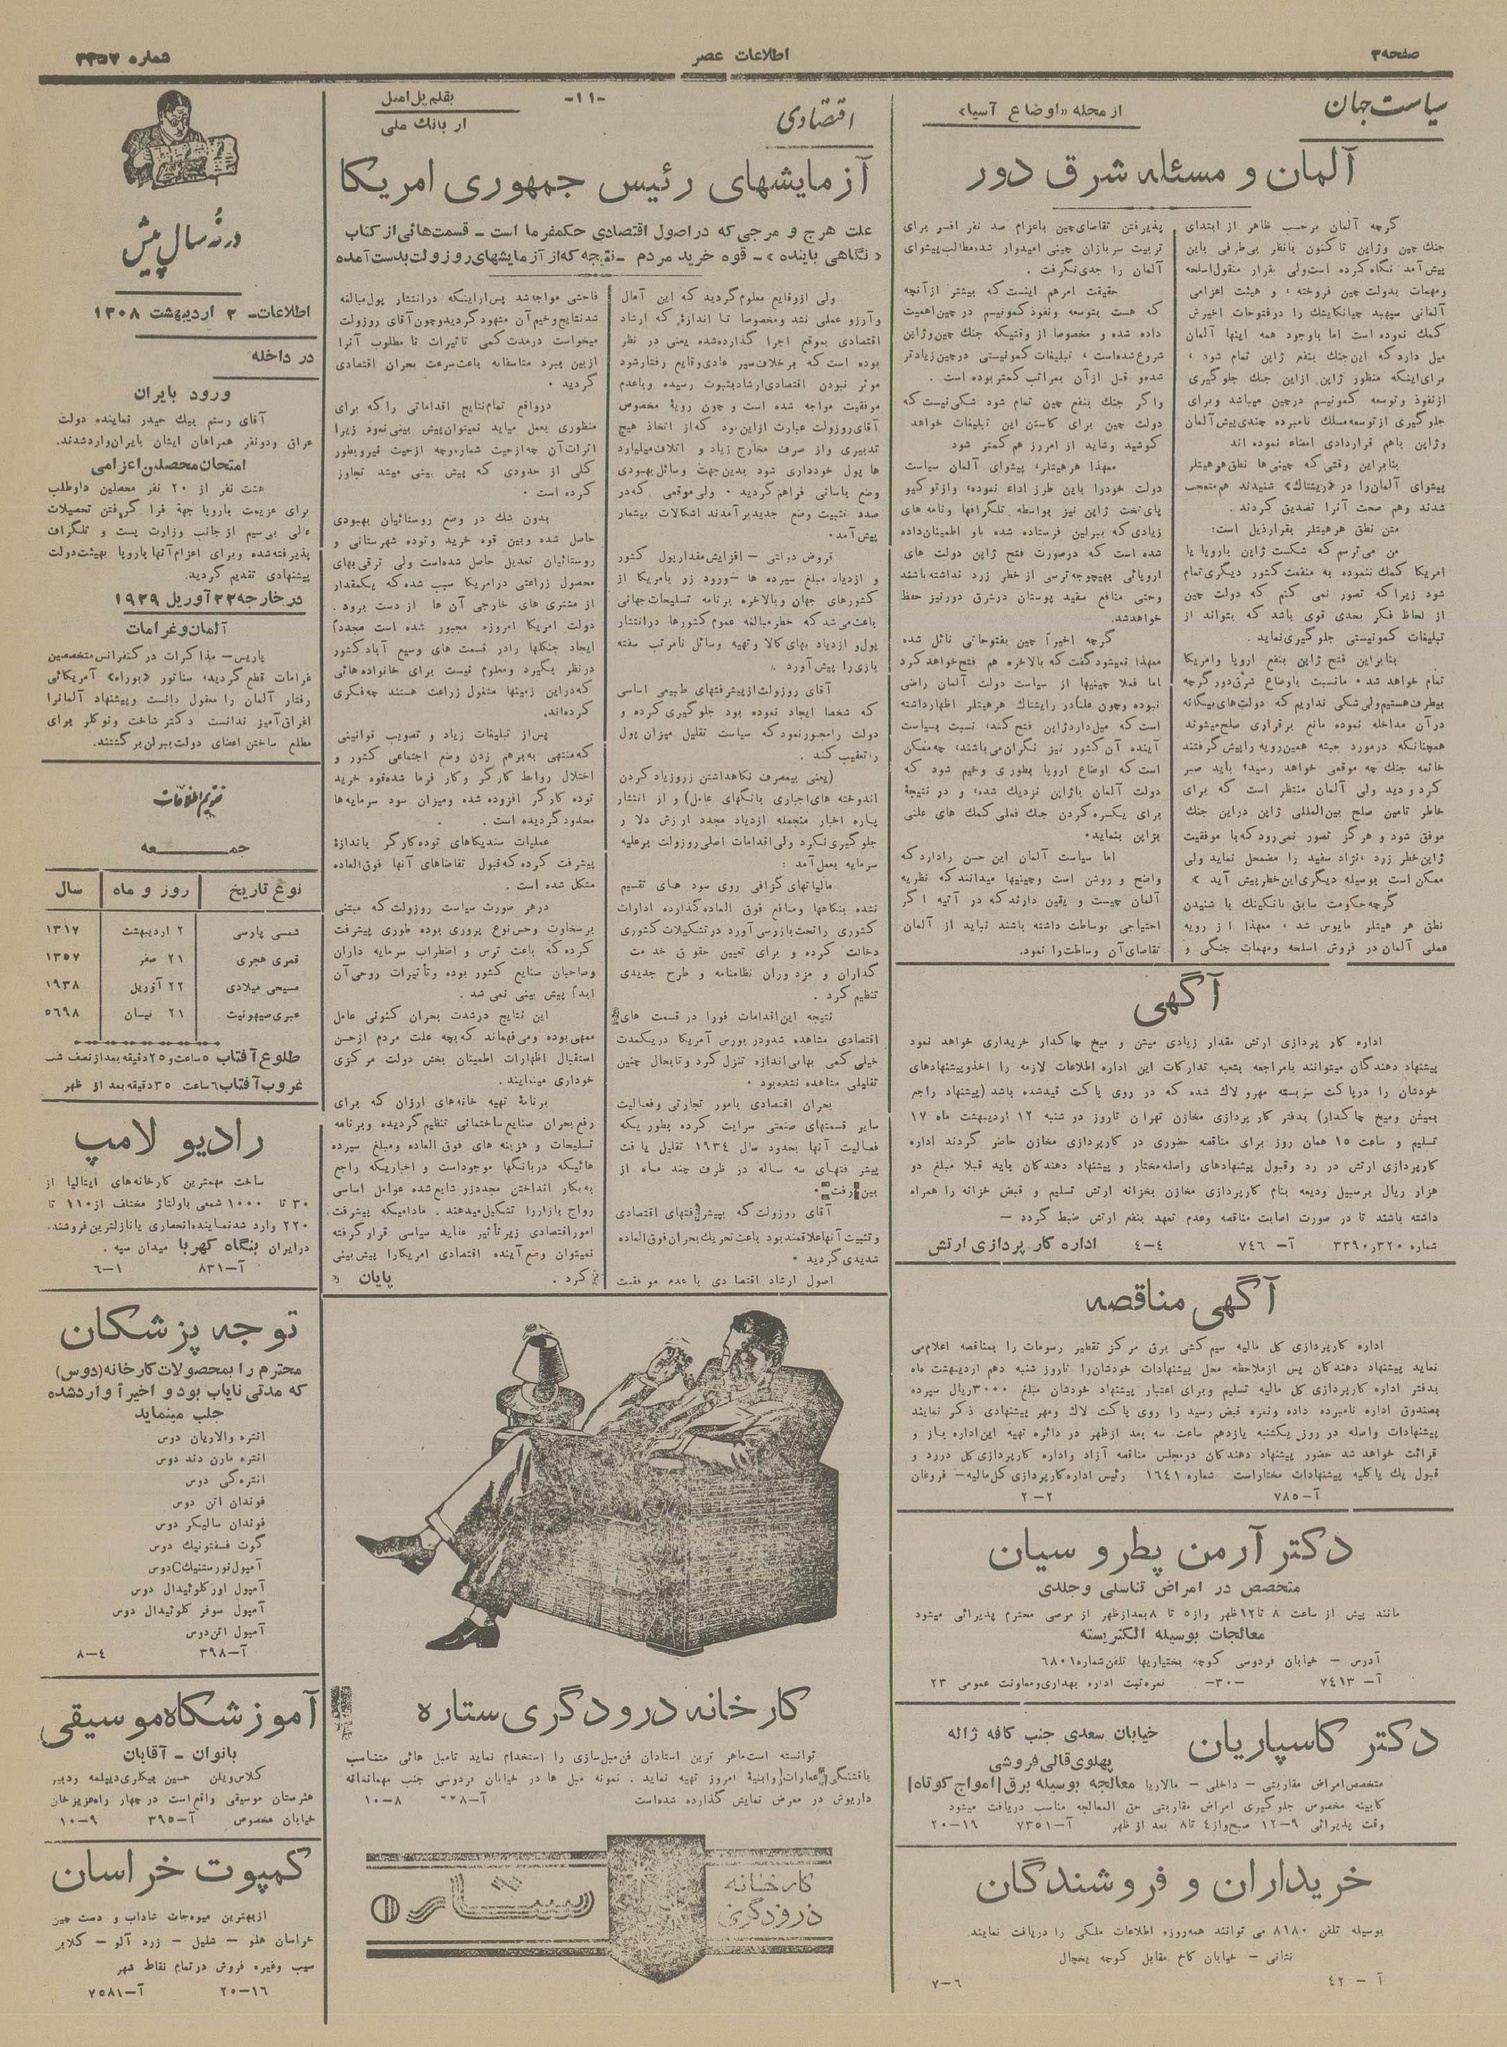 صفحه ۲
اطلاعات عصر
شماره ۳۳۵۷
سیاست جهان
از مجله «اوضاع آسیا»
آلمان و مسئله شرق دور
گرچه آلمان برحسب ظاهر از ابتدای
جنگ چین وژاپن تاکنون بانظر بی‌طرفی باین
پیش آمد نگاه کرده است ولی بقرار منقول اسلحه
ومهمات بدولت چین فروخته ، و هیئت اعزامی
آلمانی سپهبد چیانکایتک را درفتوحات اخیرش
کمک نموده است اما باوجود همه اینها آلمان
میل دارد که این جنگ بنفع ژاپن تمام شود ،
برای اینکه منظور ژاپن ازاین جنگ جلوگیری
ازنفوذ وتوسعه کمونیسم درچین میباشد وبرای
جلوگیری از توسعه مسلک نامبرده چندی پیش آلمان
وژاپن باهم قراردادی امضاء نموده اند
بنابراین وقتی که چینی ها نطق هرهیتلر
پیشوای آلمان را در «ریشتاک» شنیدند هم متعجب
شدند وهم صحت آنرا تصدیق کردند .
متن نطق هرهیتلر بقرارذیل است:
من می‌ترسم که شکست ژاپن باروپا یا
امریکا کمک ننموده به منفعت کشور دیگری تمام
شود زیراکه تصور نمی کنم که دولت چین
از لحاظ فکر بحدی قوی باشد که بتواند از
تبلیغات کمونیستی جلوگیری نماید.
بنابراین فتح ژاپن بنفع اروپا وامریکا
تمام خواهد شد . مانسبت باوضاع شرق دور گرچه
بیطرف هستیم ولی شکی نداریم که دولت‌های بیگانه
درآن مداخله نموده مانع برقراری صلح میشوند
همچنانکه درمورد حبشه همین رویه را پیش گرفتند
خاتمه جنگ چه موقعی خواهد رسید؛ باید صبر
کرد و دید ولی آلمان منتظر است که برای
خاطر تامین صلح بین‌المللی ژاپن دراین جنگ
موفق شود و هرگز تصور نمی‌رود که با موفقیت
ژاپن خطر زرد ، نژاد سفید را مضمحل نماید ولی
ممکن است بوسیله دیگری این خطر پیش آید »
گرچه حکومت سابق نانکینک با شنیدن
نطق هر هیتلر مایوس شد ، معهذا از رویه
عملی آلمان در فروش اسلحه ومهمات جنگی و
پذیرفتن تقاضای چین باعزام صد نفر افسر برای
تربیت سربازان چینی امیدوار شده مطالب پیشوای
آلمان را جدی نگرفت .
حقیقت امر هم اینست که بیشتر از آنچه
که هست بتوسعه ونفوذ کمونیسم در چین اهمیت
داده شده و مخصوصا از وقتیکه جنگ چین وژاپن
شروع شده است ، تبلیغات کمونیستی درچین زیادتر
شده و قبل از آن بمراتب کمتر بوده است .
واگر جنگ بنفع چین تمام شود شکی نیست که
دولت چین برای کاستن این تبلیغات خواهد
کوشید وشاید از امروز هم کمتر شود
معهذا هرهیتلر، پیشوای آلمان سیاست
دولت خودرا باین طرز اداء نموده؛ واز توکیو
پای تخت ژاپن نیز بواسطه تلگرافها ونامه های
زیادی که ببرلین فرستاده شده باو اطمینان داده
شده است که درصورت فتح ژاپن دولت های
اروپائی بهیچوجه ترسی از خطر زرد نداشته باشند
وحتی منافع سفید پوستان درشرق دورنیز حفظ
خواهدشد.
گرچه اخیراً چین بفتوحاتی نائل شده
معهذا نمیشود گفت که بالاخره هم فتح خواهد کرد
اما فعلا چینیها از سیاست دولت آلمان راضی
نبوده وچون علنادر رایشتاک هرهیتلر اظهارداشته
است که میل دارد ژاپن فتح کند، نسبت بسیاست
آینده آن کشور نیز نگران می‌باشند، چه ممکن
است که اوضاع اروپا بطوری وخیم شود که
دولت آلمان باژاپن نزدیک شده و در نتیجه
برای یکسره کردن جنگ فعلی کمک های علنی
بژاپن بنماید.
اما سیاست آلمان این حسن را دارد که
واضح و روشن است وچینیها میدانند که نظریه
آلمان چیست و یقین دارند که در آتیه اگر
احتیاجی بوساطت داشته باشند نباید از آلمان
تقاضای آن وساطت را نمود.
آگهی
اداره کار پردازی ارتش مقدار زیادی میتن و میخ چاکدار خریداری خواهد نمود
پیشنهاد دهندگان میتوانند بامراجعه بشعبه تدارکات این اداره اطلاعات لازمه را اخذوپیشنهادهای
خودشان را درپاکت سربسته مهر و لاک شده که در روی پاکت قیدشده باشد (پیشنهاد راجع
بمیتن ومیخ چاکدار) بدفتر کار پردازی مخازن تهران تاروز دو شنبه ۱۲ اردیبهشت ماه ۱۷
تسلیم و ساعت ۱۵ همان روز برای مناقصه حضوری در کارپردازی مخازن حاضر گردند اداره
کارپردازی ارتش در رد وقبول پیشنهادهای واصله مختار و پیشنهاد دهندگان باید قبلا مبلغ دو
هزار ریال برسبیل ودیعه بنام کارپردازی مخازن بخزانه ارتش تسلیم و قبض خزانه را همراه
داشته باشند تا در صورت اصابت مناقصه وعدم تعهد بنفع ارتش ضبط گردد —
شماره ۳۳۹۰٫۳۲۰ آ— ۷۴۶ ۴—۴ اداره کار پردازی ارتش
آگهی مناقصه
اداره کارپردازی کل مالیه سیم کشی برق مرکز تقطیر رسومات را بمناقصه اعلام می
نماید پیشنهاد دهندگان پس ازملاحظه محل پیشنهادات خودشان را تاروز شنبه دهم اردیبهشت ماه
بدفتر اداره کارپردازی کل مالیه تسلیم وبرای اعتبار پیشنهاد خودشان مبلغ ۳۰۰۰ریال سپرده
بصندوق اداره نامبرده داده ونمره قبض رسید را روی پاکت لاک ومهر پیشنهادی ذکر نمایند
پیشنهادات واصله در روز یکشنبه یازدهم ساعت سه بعد ازظهر در دائره تهیه این اداره باز و
قرائت خواهد شد حضور پیشنهاد دهندگان درمجلس مناقصه آزاد واداره کارپردازی کل دررد و
قبول یک یا کلیه پیشنهادات مختاراست شماره ۱۶۴۱ رئیس اداره کارپردازی کل مالیه— فروغان
آ—۷۸۵ ۲—۲
دکتر آرمن پطروسیان
متخصص در امراض تناسلی وجلدی
مانند پیش از ساعت ۸ تا۱۲ظهر واز۵ تا ۸بعدازظهر از مرضی محترم پذیرائی میشود
معالجات بوسیله الکتریسته
آدرس — خیابان فردوسی کوچه بختیاریها تلفن شماره ۶۸۰۱
آ— ۷۴۱۳ —۳۰— نمره ثبت اداره بهداری ومعاونت عمومی ۲۳
دکتر کاسپاریان
خیابان سعدی جنب کافه ژاله
پهلوی قالی فروشی
متخصص امراض مقاربتی — داخلی — مالاریا معالجه بوسیله برق (امواج کوتاه)
کابینه مخصوص جلوگیری امراض مقاربتی حق المعالجه مناسب دریافت میشود
وقت پذیرائی ۹—۱۲ صبح واز٤ تا۸ بعد از ظهر آ—۷۳۵۱ ۱۹—۲۰
خریداران و فروشندگان
بوسیله تلفن ۸۱۸۰ می توانند همه‌روزه اطلاعات ملکی را دریافت نمایند.
نشانی — خیابان کاخ مقابل کوچه یخچال
آ — ۴۲ ۶—۷
اقتصادی
—۱۱—
بقلم پل امیل
از بانک ملی
آزمایشهای رئیس جمهوری امریکا
علت هرج و مرجی که دراصول اقتصادی حکمفرما است — قسمت هائی از کتاب
«نگاهی باینده» — قوه خرید مردم — نتیجه که از آزمایشهای روزولت بدست آمده
ولی ازوقایع معلوم گردید که این آمال
وآرزو عملی نشد ومخصوصا تا اندازهٔ که ارشاد
اقتصادی بموقع اجرا گذارده‌شده یعنی در نظر
بوده است که برخلاف سیر عادی وقایع رفتارشود
موثر نبودن اقتصادی ارشاد بثبوت رسیده وباعدم
موفقیت مواجه شده است و چون رویهٔ مخصوص
آقای روزولت عبارت از این بود که از اتخاذ هیچ
تدبیری واز صرف مخارج زیاد و اتلاف میلیارد
ها پول خودداری شود بدین جهت وسائل بهبودی
وضع باسانی فراهم گردید . ولی موقعی که در
صدد تثبیت وضع جدید بر آمدند اشکالات بیشمار
پیش آمد.
قروض دولتی — افزایش مقدار پول کشور
و ازدیاد مبلغ سپرده ها —ورود زر بامریکا از
کشورهای جهان وبالاخره برنامه تسلیحات جهانی
باعث می‌شد که خطر مبالغه عموم کشورها درانتشار
پول و ازدیاد بهای کالا و تهیه وسائل نامرتب سفته
بازی را پیش آورد .
آقای روزولت از پیشرفتهای طبیعی اساسی
که شخصا ایجاد نموده بود جلوگیری کرده و
دولت را مجبورنمود که سیاست تقلیل میزان پول
را تعقیب کند .
(یعنی بیمصرف نگاهداشتن زروزیاد کردن
اندوخته های اجباری بانگهای عامل) و از انتشار
پاره اخبار منجمله ازدیاد مجدد ارزش دلار
جلوگیری نکرد ولی اقدامات اصلی روزولت برعلیه
سرمایه بعمل آمد :
مالیاتهای گزافی روی سود های تقسیم
نشده بنگاهها ومنافع فوق العاده گذارده ادارات
کشوری را تحت بازرسی آورد ودرتشکیلات کشوری
دخالت کرده و برای تعیین حقوق خدمت
گذاران و مزدوران نظامنامه و طرح جدیدی
تنظیم کرد .
نتیجه این اقدامات فورا در قسمت های
اقتصادی مشاهده شد ودر بورس آمریکا دریکمدت
خیلی کمی بهائی اندازه تنزل کرد وتابحال چنین
تقلیلی مشاهده نشده بود .
بحران اقتصادی بامور تجارتی وفعالیت
سایر قسمتهای صنعتی سرایت کرده بطوریکه
فعالیت آنها بحدود سال ۱۹۳٤ تقلیل یافت
پیشرفتهای سه ساله در ظرف چند ماه از
بین رفت .
آقای روزولت که بپیشرفتهای اقتصادی
وتثبیت آنها علاقمند بود باعث تحریک بحران فوق العاده
شدیدی گردید .
اصول ارشاد اقتصادی با عدم موفقیت
فاحشی مواجه شد پس از اینکه درانتشار پول مبالغه
شد نتایج وخیم آن مشهود گردید وچون آقای روزولت
میخواست درمدت کمی تاثیرات نا مطلوب آنرا
ازبین ببرد متاسفانه باعث سرعت بحران اقتصادی
گردید .
درواقع تمام نتایج اقداماتی را که برای
منظوری بعمل میاید نمیتوان پیش بینی نمود زیرا
اثرات آن چه از حیث شماره و چه از حیث نیرو بطور
کلی از حدودی که پیش بینی میشد تجاوز
کرده است .
بدون شک در وضع روستائیان بهبودی
حاصل شده وبین قوه خرید وتوده شهرستانی و
روستائیان تعدیل حاصل شده است ولی ترقی بهای
محصول زراعتی در امریکا سبب شده که یکمقدار
از مشتری های خارجی آن ها از دست برود.
دولت امریکا امروزه مجبور شده است مجدداً
ایجاد جنگلها رادر قسمت های وسیع آباد کشور
درنظر بگیرد ومعلوم نیست برای خانواده هائی
که در این زمینها مشغول زراعت هستند چه فکری
کرده اند.
پس از تبلیغات زیاد و تصویب قوانینی
که منتهی به برهم زدن وضع اجتماعی کشور و
اختلال روابط کارگر وکار فرما شده قوه خرید
توده کارگر افزوده شده ومیزان سود سرمایه ها
محدود گردیده است .
عملیات سندیکاهای توده کارگر باندازهٔ
پیشرفت کرده که قبول تقاضاهای آنها فوق العاده
مشکل شده است .
درهر صورت سیاست روزولت که مبتنی
برسخاوت وحس نوع پروری بوده طوری پیشرفت
کرده که باعث ترس و اضطراب سرمایه داران
وصاحبان صنایع کشور بوده وتأثیرات روحی آن
ابداً پیش بینی نمی شد .
این نتایج درشدت بحران کنونی عامل
مهمی بوده ومی‌فهماند که بچه علت مردم از حسن
استقبال اظهارات اطمینان بخش دولت مرکزی
خودداری مینمایند.
برنامهٔ تهیه خانه های ارزان که برای
رفع بحران صنایع ساختمانی تنظیم گردیده وبرنامه
تسلیحات و هزینه های فوق العاده ومبلغ سپرده
هائیکه در بانگها موجوداست و اخباریکه راجع
به بکار انداختن مجدد زر شایع شده عوامل اساسی
رواج بازاررا تشکیل میدهند . مادامیکه پیشرفت
امور اقتصادی زیر تأثیر عقاید سیاسی قرار گرفته
نمیتوان وضع آینده اقتصادی امریکارا پیش بینی
کرد . پایان
کارخانه درودگری ستاره
توانسته است ماهر ترین استادان فن مبل‌سازی را استخدام نماید تامبل هائی متناسب
باقشنگی عمارات وابنیهٔ امروز تهیه نماید . نمونه مبل ها در خیابان فردوسی جنب مهمانخانه
داریوش در معرض نمایش گذارده شده است ۸—۱۰
کارخانه
درودگری
ستاره
در نه سال پیش
اطلاعات— ۲ اردیبهشت ۱۳۰۸
در داخله
ورود بایران
آقای رستم بیک حیدر نماینده دولت
عراق ودونفر همراهان ایشان بایران واردشدند.
امتحان محصلین اعزامی
هشت نفر از ۲۰ نفر محصلین داوطلب
برای عزیمت باروپا جهة فرا گرفتن تحصیلات
عالی بی سیم از جانب وزارت پست و تلگراف
پذیرفته شده وبرای اعزام آنها باروپا بهیئت دولت
پیشنهادی تقدیم گردید.
در خارجه ۲۲ آوریل ۱۹۲۹
آلمان و غرامات
پاریس— مذاکرات در کنفرانس متخصصین
غرامات قطع گردید؛ سناتور «بوراه» آمریکائی
رفتار آلمان را معقول دانست وپیشنهاد آلمانرا
اغراق آمیز ندانست دکتر شاخت ونوکلر برای
مطلع ساختن اعضای دولت ببرلن برگشتند.
تقویم اطلاعات
جمعه
نوع تاریخ | روز و ماه | سال
شمسی پارسی | ۲ اردیبهشت | ۱۳۱۷
قمری هجری | ۲۱ صفر | ۱۳۵۷
مسیحی میلادی | ۲۲ آوریل | ۱۹۳۸
عبری صیهونیت | ۲۱ نیسان | ۵۶۹۸
طلوع آفتاب ۵ ساعت و ۲۵ دقیقه بعد از نصف شب
غروب آفتاب ۶ ساعت ۳۵ دقیقه بعد از ظهر
رادیو لامپ
ساخت مهمترین کارخانه‌های ایتالیا از
۳۰ تا ۱۰۰۰ شمعی باولتاژ مختلف از ۱۱۰ تا
۲۲۰ وارد شد نماینده انحصاری با نازلترین فروشند.
درایران بنگاه کهربا میدان سپه .
آ—۸۳۱ ۱—۶
توجه پزشکان
محترم را بمحصولات کارخانه (دوس)
که مدتی نایاب بود و اخیراً وارد شده
جلب مینماید
انتره والاریان دوس
انتره مارن دند دوس
انتره گی دوس
فوندان اتن دوس
فوندان سالیکر دوس
گوت فسفتونیک دوس
آمپول نورستنیک C دوس
آمپول اورکلوئیدال دوس
آمپول سوفر کلوئیدال دوس
آمپول اتن دوس
آ—۳۹۸ ٤—۸
آموزشگاه موسیقی
بانوان — آقایان
کلاس ویلن حسین پیکلری دیپلمه ردبیر
هنرستان موسیقی واقع است در چهار راه عزیز خان
خیابان مخصوص آ—۳۹۵ ۹—۱۰
کمپوت خراسان
از بهترین میوه‌جات شاداب و دست چین
خراسان هلو — شلیل — زرد آلو — گلابی
سیب وغیره فروش در تمام نقاط شهر
آ—۷۵۸۱ ۱۶—۲۰